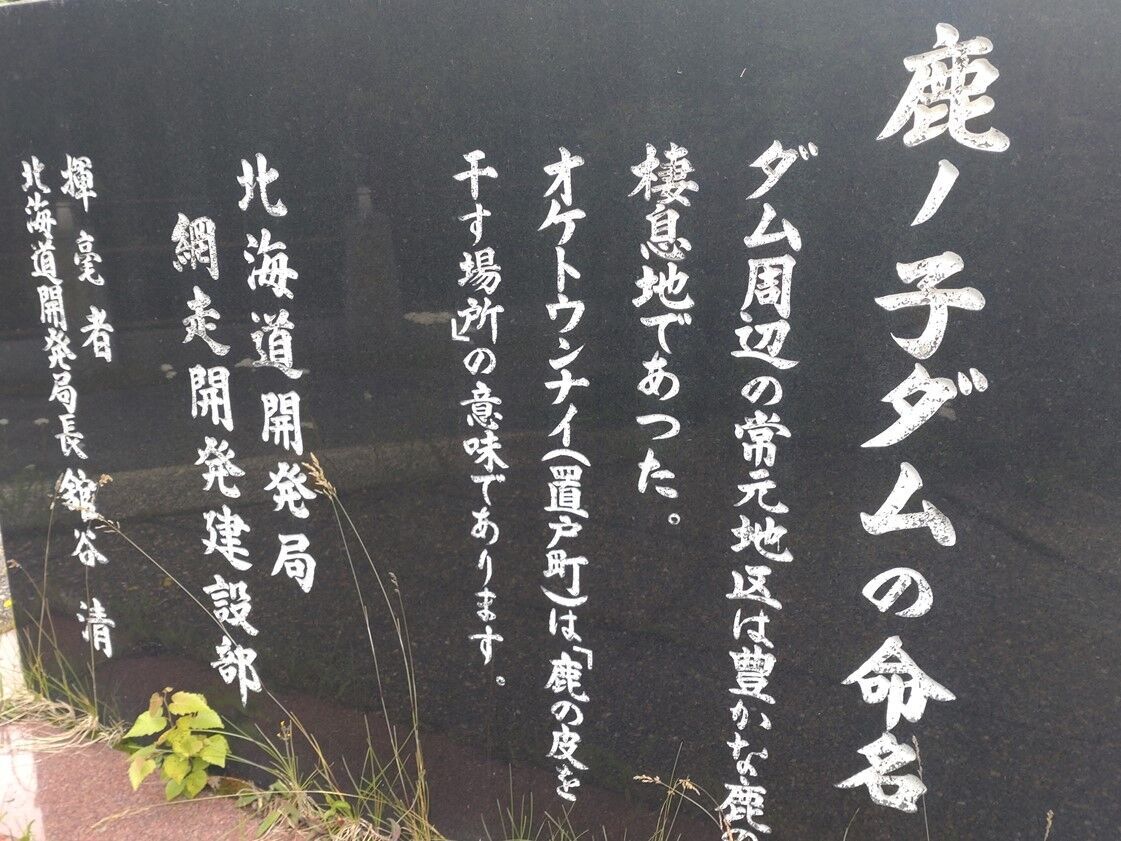 鹿ノ子ダムの命名
ダム周辺の常元地区は豊かな鹿の
棲息地であつた。
オケトウンナイ(置戸町)は、「鹿の皮を
干す場所」の意味であります。
北海道開発局
網走開発建設部
揮毫者
北海道開発局長 舘谷 清